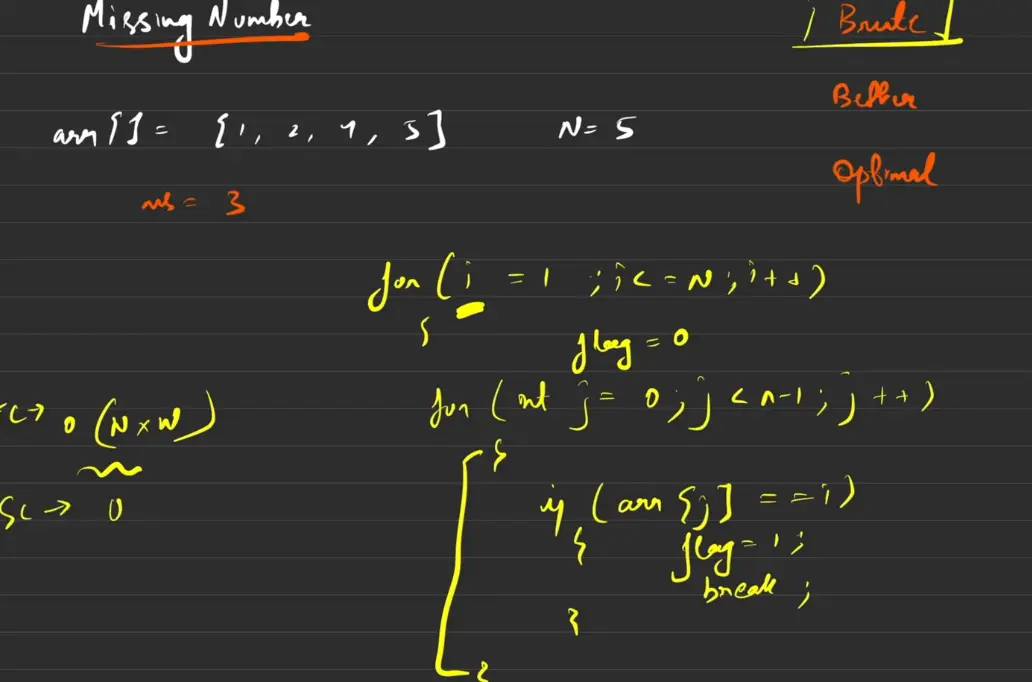 Missing Number
Brute
Better
Optimal
arr[] = {1, 2, 4, 5} N = 5
ans = 3
for (i = 1 ; i <= N ; i++)
{
flag = 0
for (int j = 0 ; j < n-1 ; j++)
{
TC → O (N x N)
SC → O
if (arr[j] == i)
{
flag = 1 ;
break ;
}
}